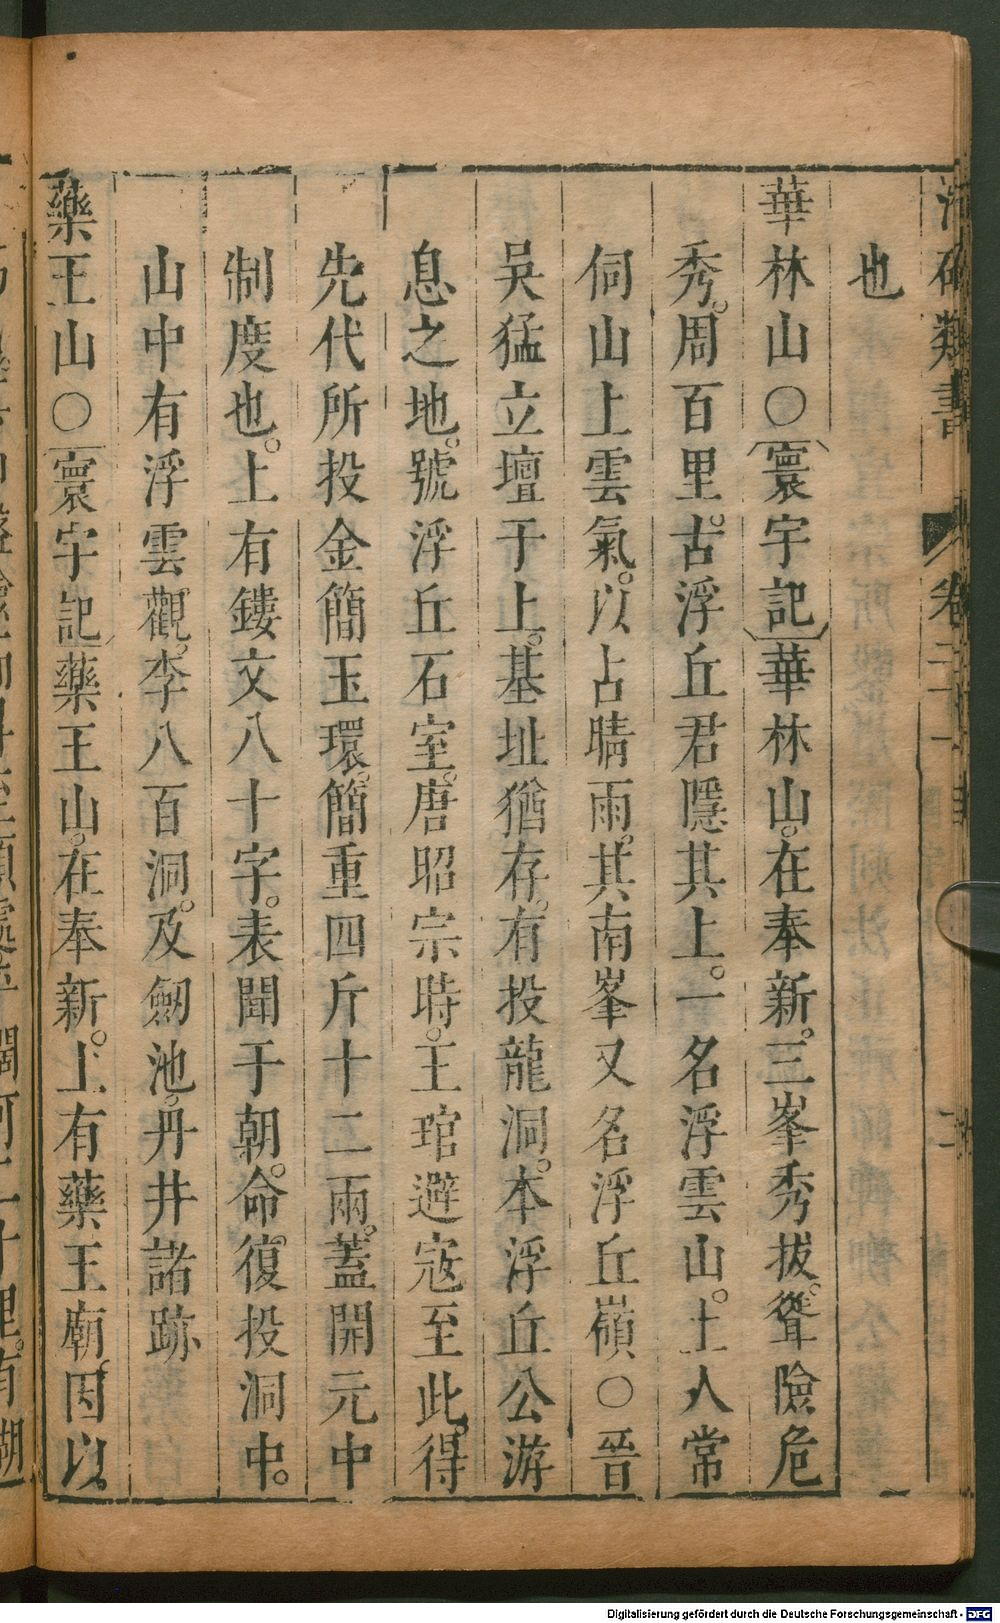 類書 卷二十一
也
華林山〇寰宇記華林山。在奉新。三峯秀拔。聳險危
秀。周百里。古浮丘君隱其上。一名浮雲山。土人常
伺山上雲氣。以占晴雨。其南峯又名浮丘嶺〇晉
吳猛立壇于上。基址猶存。有投龍洞。本浮丘公游
息之地。號浮丘石室。唐昭宗時。王琯避寇至此。得
先代所投金簡玉環。簡重四斤十二兩。蓋開元中
制度也。上有鏤文八十字。表聞于朝。命復投洞中。
山中有浮雲觀。李八百洞。及劒池。丹井諸跡
藥王山〇寰宇記藥王山。在奉新。上有藥王廟。因以
Digitalisierung gefördert durch die Deutsche Forschungsgemeinschaft - DFG